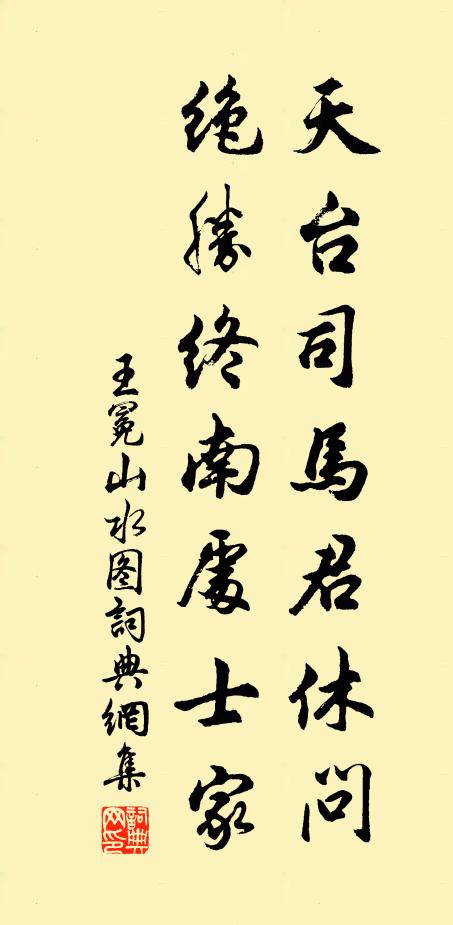 天台司馬君休問
絶勝終南處士家
王冕山水图詞典網集
詞典
网印